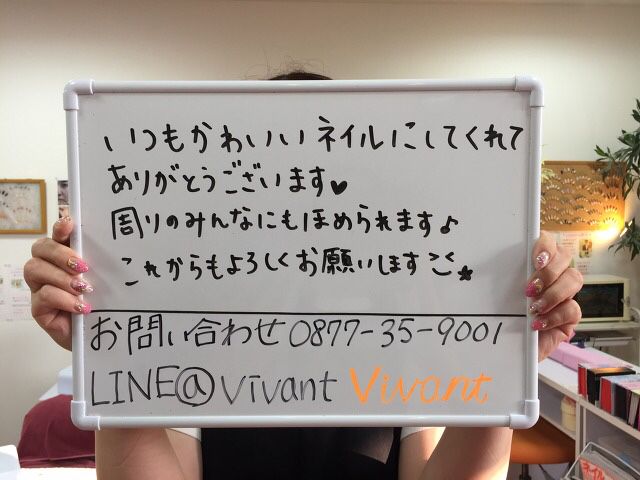 いつもかわいいネイルにしてくれて
ありがとうございます♥
周りのみんなにもほめられます♪
これからもよろしくお願いします
お問い合わせ 0877-35-9001
LINE@vivant Vivant
ネイル